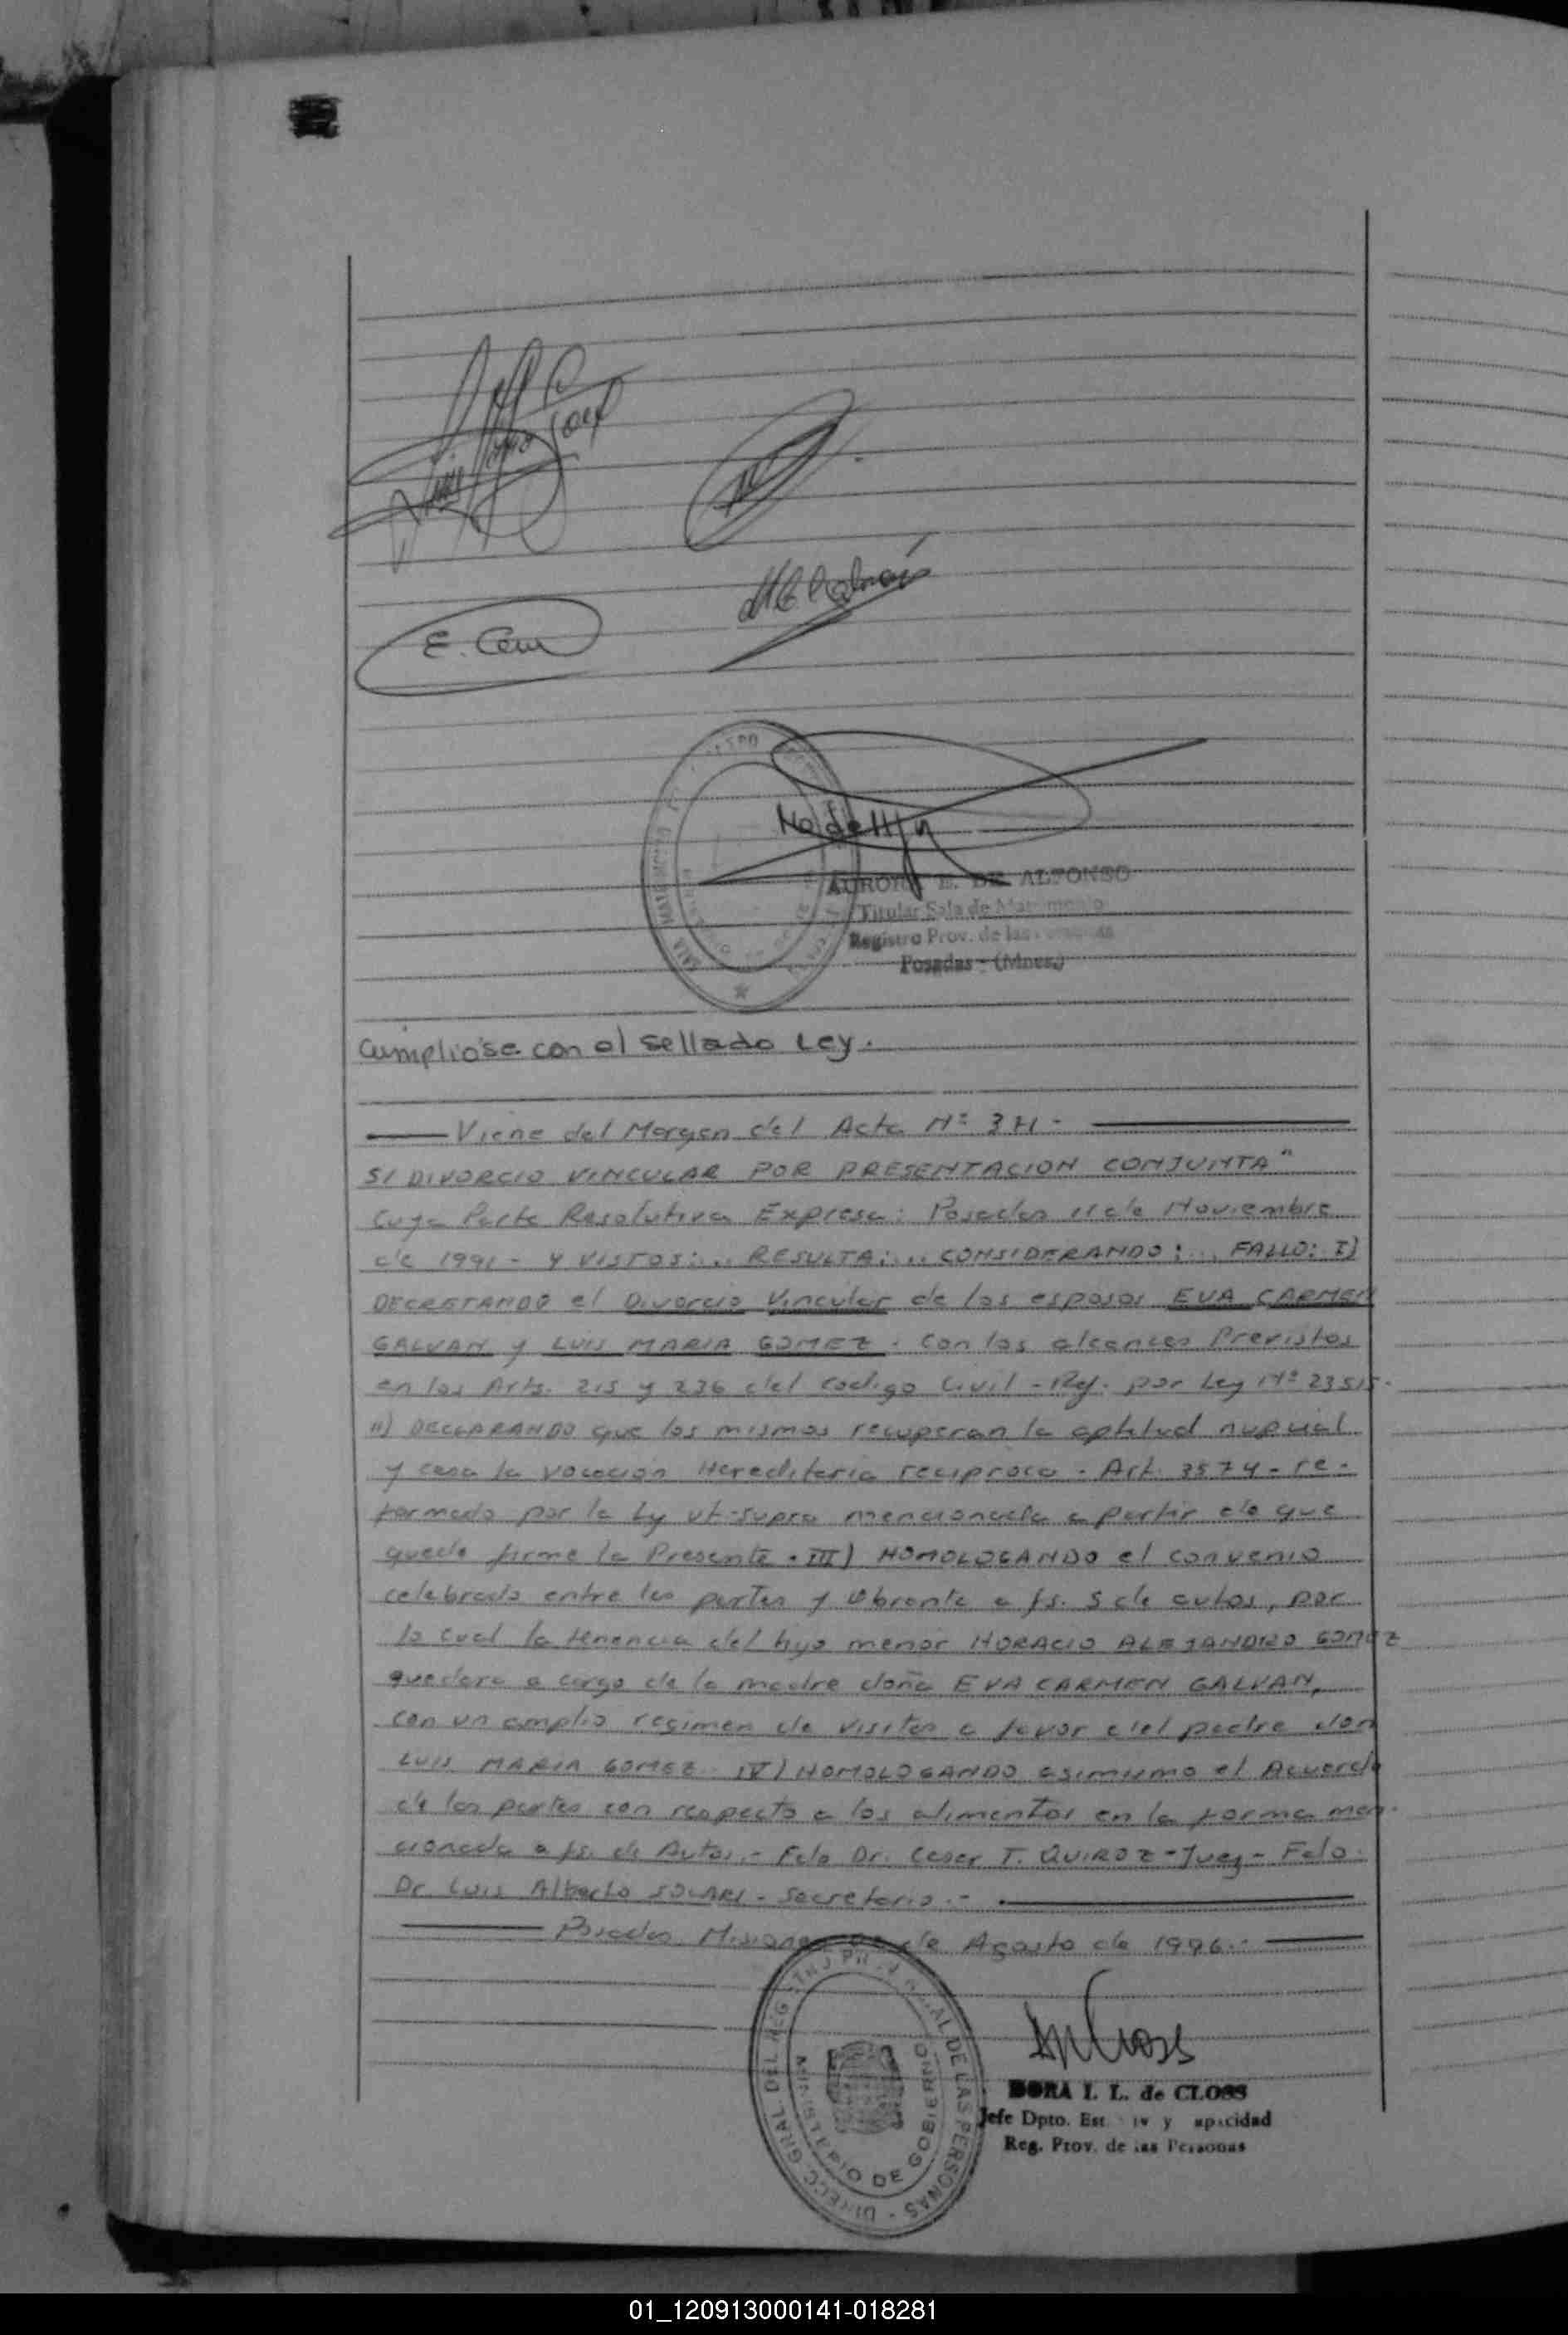 E. Cem
Nodelljn
AURORA E. DE ALFONSO
Titular Sala de Matrimonio
Registro Prov. de las Personas
Posadas - (Mnes.)
Cumplióse con el sellado Ley.
Viene del Margen del Acta Nº 371 -
S/ DIVORCIO VINCULAR POR PRESENTACION CONJUNTA"
Cuya Parte Resolutiva Expresa: Posadas 11 de Noviembre
de 1991 - Y VISTOS:... RESULTA:... CONSIDERANDO:... FALLO: I)
DECRETANDO el Divorcio Vincular de los esposos EVA CARMEN
GALVAN y LUIS MARIA GOMEZ. Con los alcances Previstos
en los Arts. 215 y 236 del Codigo Civil - Ref. por Ley Nº 23515-
II) DECLARANDO que los mismos recuperan la aptitud nupcial
y cesa la vocación Hereditaria reciproca - Art. 3574 - re-
formado por la Ley ut-supra mencionada a partir de que
quede firme la Presente. III) HOMOLOGANDO el convenio
celebrado entre las partes y obrante a fs. 5 de autos, por
lo cual la tenencia del hijo menor HORACIO ALEJANDRO GOMEZ
quedara a cargo de la madre doña EVA CARMEN GALVAN,
con un amplio regimen de visitas a favor del padre don
LUIS MARIA GOMEZ. IV) HOMOLOGANDO asimismo el Acuerdo
de las partes con respecto a los alimentos en la forma men-
cionada a fs. de Autos.- Fdo Dr. Cesar T. QUIROZ - Juez - Fdo.
Dr. Luis Alberto SOLARI - Secretario.-
Posadas Misiones de Agosto de 1996.-
DIRECC. GRAL. DEL REGISTRO PROVINCIAL DE LAS PERSONAS
MINISTERIO DE GOBIERNO
DORA I. L. de CLOSS
Jefe Dpto. Est. Civ y Capacidad
Reg. Prov. de las Personas
01_120913000141-018281